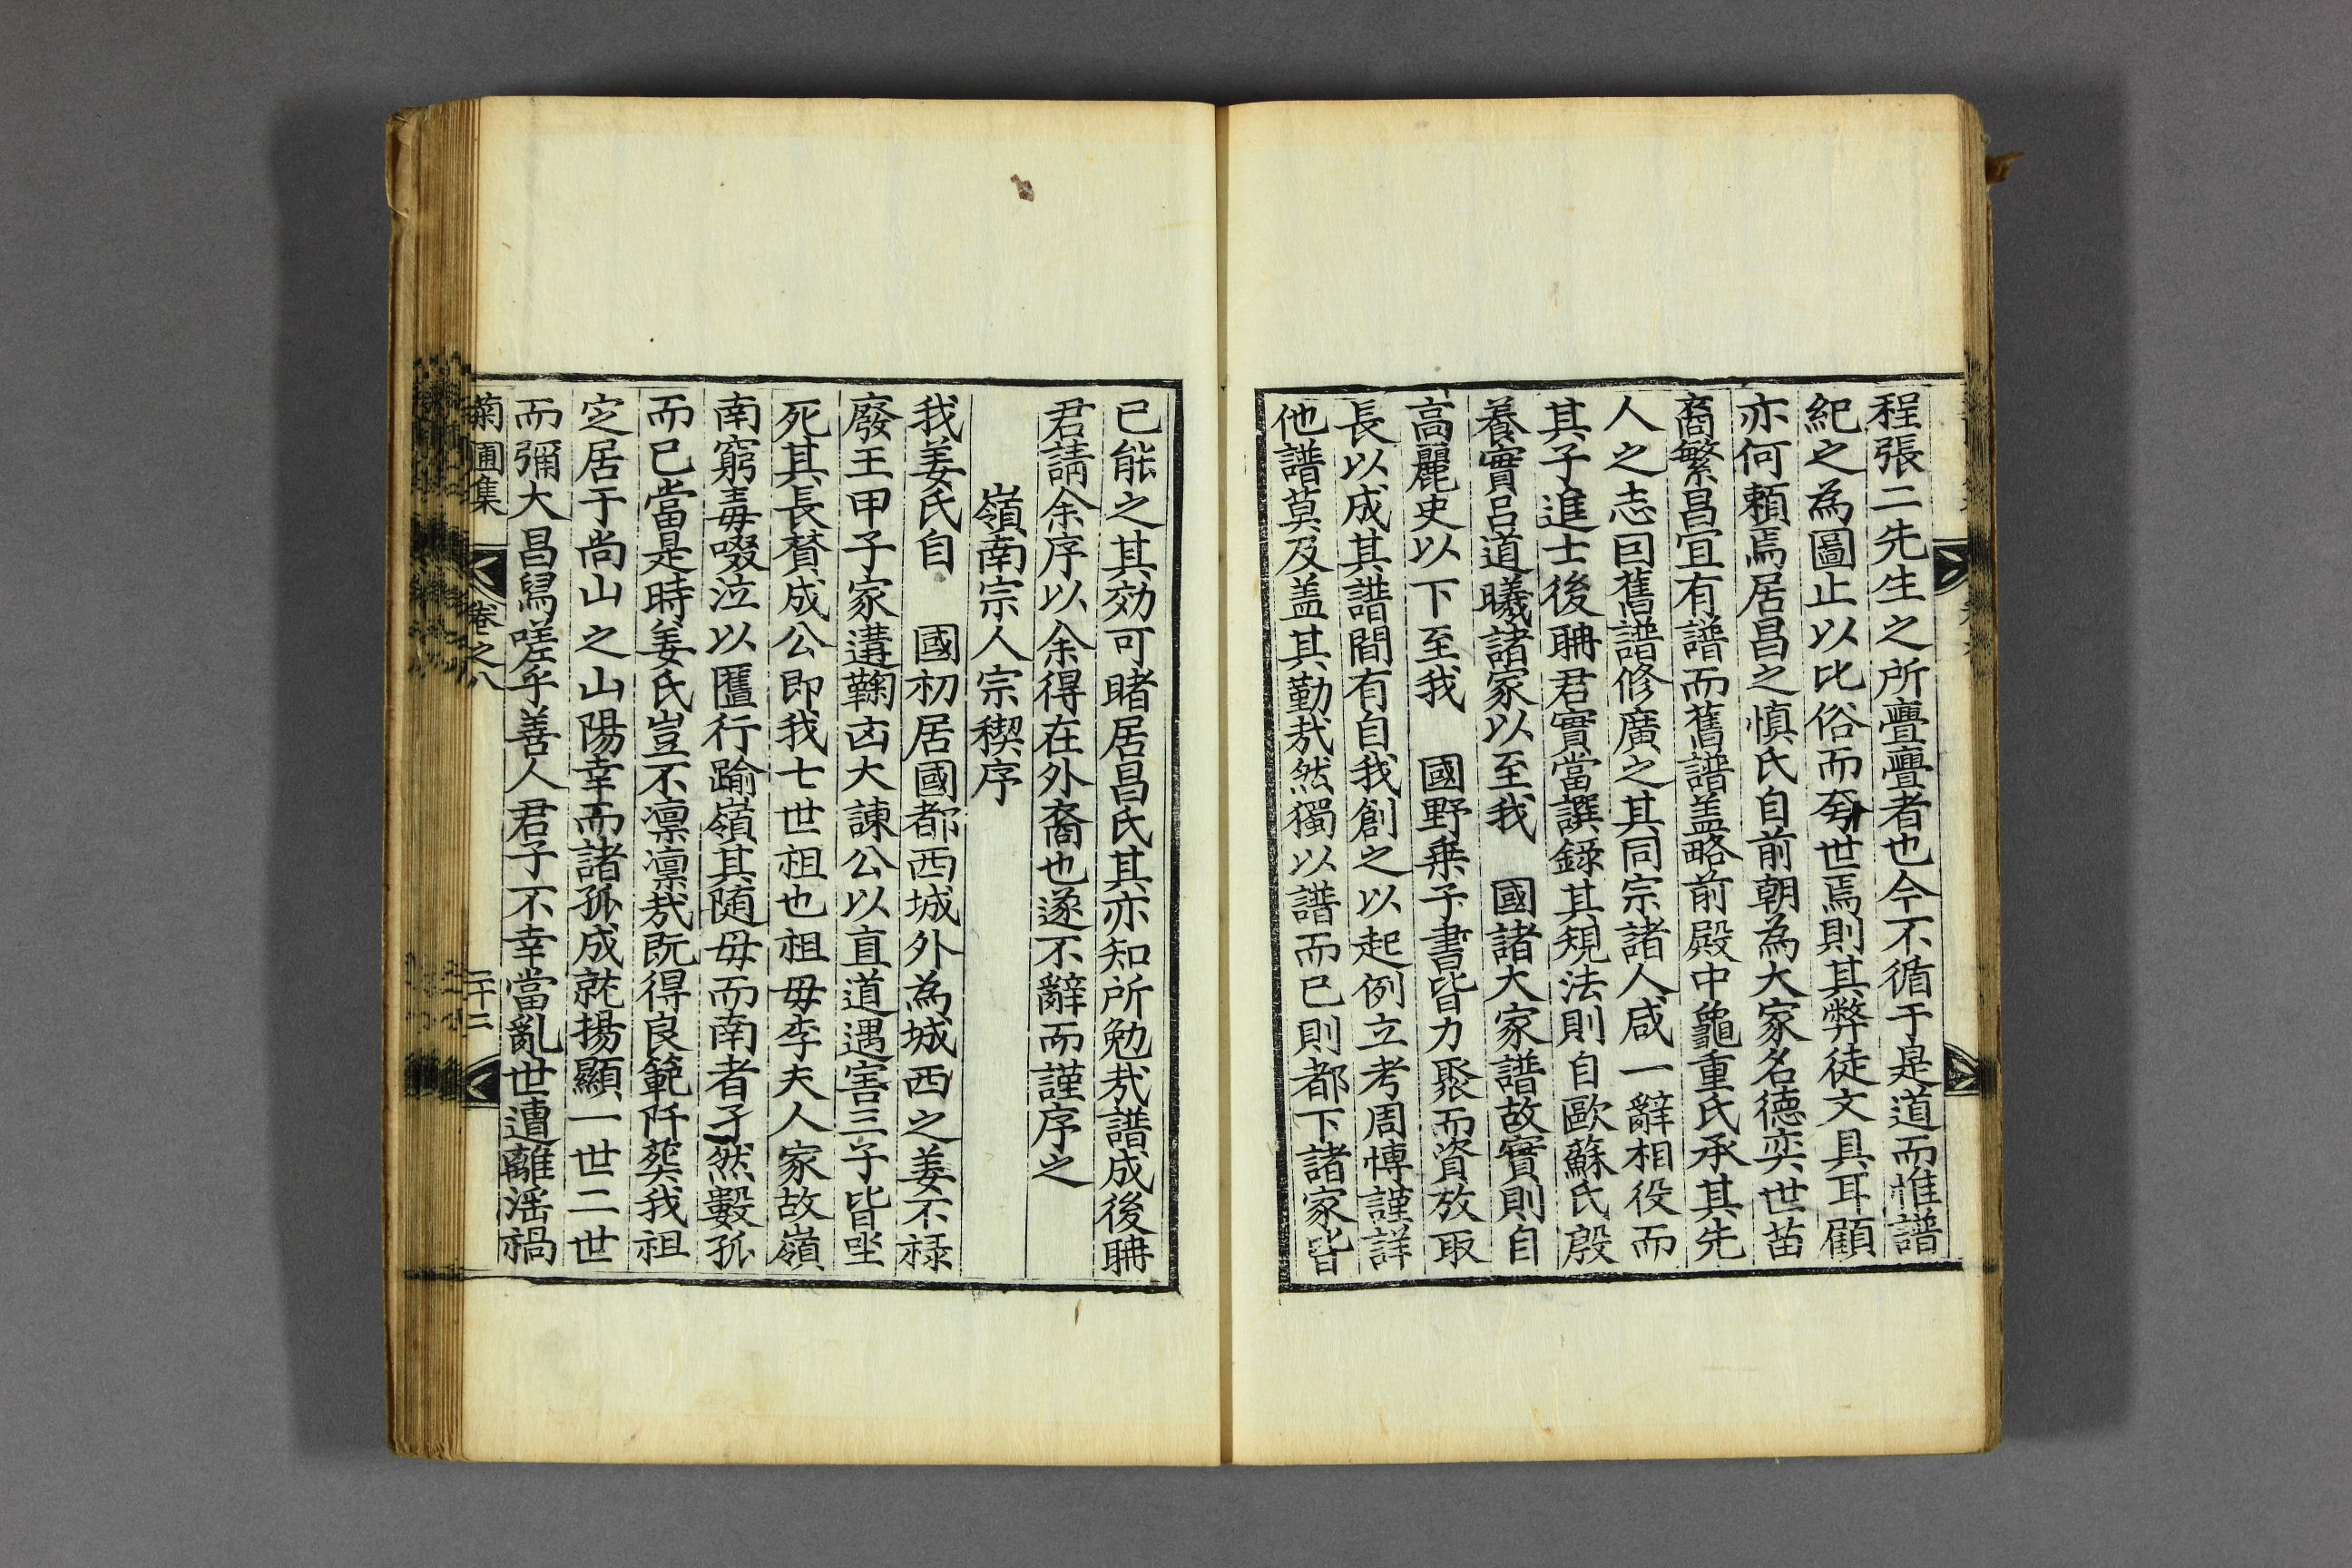 程張二先生之所亹亹者也今不循于是道而惟譜
紀之為圖止以比俗而夸世焉則其弊徒文具耳顧
亦何賴焉居昌之慎氏自前朝為大家名德奕世苗
裔繁昌冝有譜而舊譜盖略前殿中龜重氏承其先
人之志囙舊譜修廣之其同宗諸人咸一辭相役而
其子進士後聃君實當譔錄其規法則自歐蘇氏殷
養實呂道曦諸家以至我 國諸大家譜故實則自
高麗史以下至我 國野乗子書皆力聚而資攷取
長以成其譜間有自我創之以起例立考周愽謹詳
他譜莫及盖其勤㢤然獨以譜而已則都下諸家皆
已能之其効可睹居昌氏其亦知所勉㢤譜成後聃
君請余序以余得在外裔也遂不辭而謹序之
嶺南宗人宗稧序
我姜氏自 國初居國都西城外為城西之姜不禄
廢王甲子家遘鞠凶大諫公以直道遇害三子皆坐
死其長賛成公即我七世祖也祖母李夫人家故嶺
南窮毒啜泣以匶行踰嶺其随母而南者孑然數孤
而已當是時姜氏豈不凛凛㢤既得良範阡葬我祖
定居于尚山之山陽幸而諸孤成就揚顯一世二世
而彌大昌舄嗟乎善人君子不幸當亂世遭離滛禍
菊圃集 卷之八 二十二